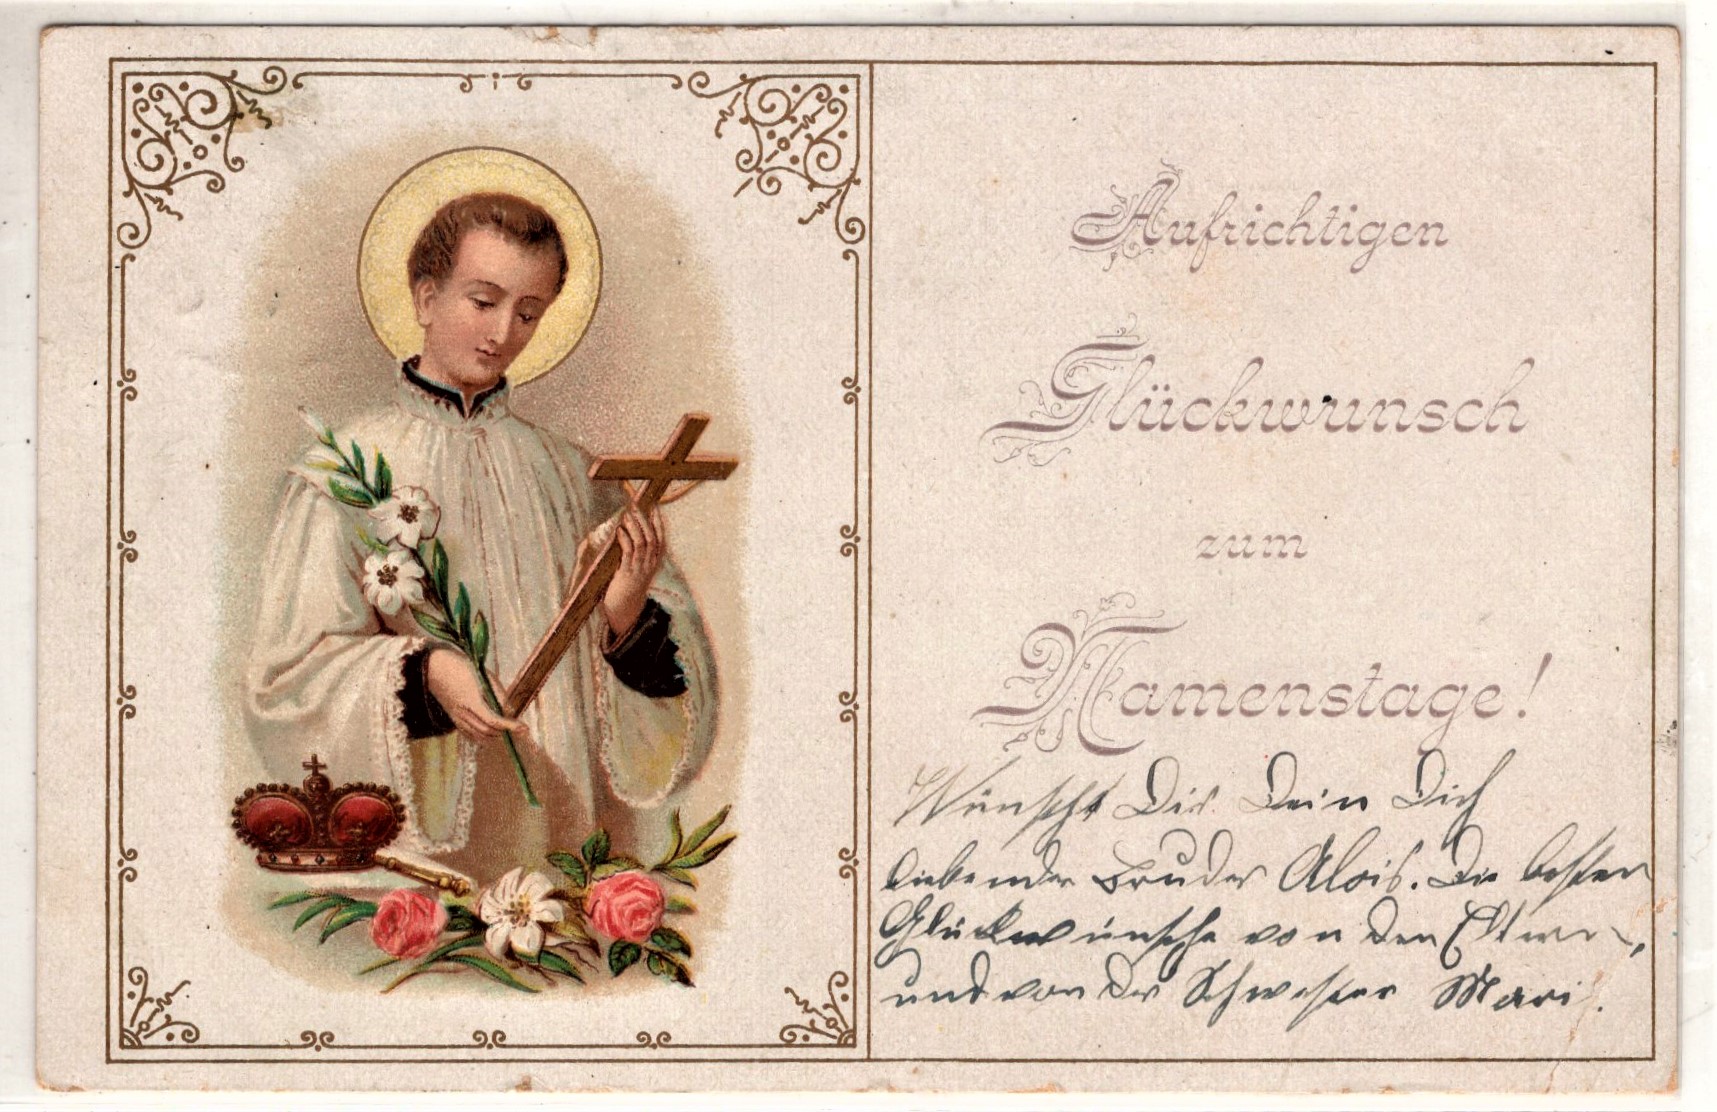 Aufrichtigen
Glückwunsch
zum
Namenstage!
Wünscht Dir Dein Dich
liebender Bruder Alois. Die besten
Glückwünsche von den Eltern,
und von der Schwester Mari.